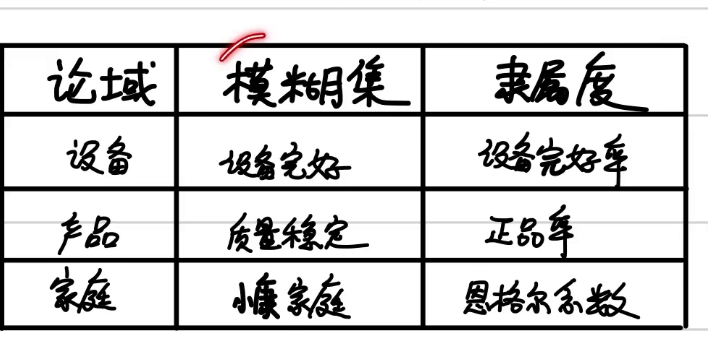 论域 模糊集 隶属度
设备 设备完好 设备完好率
产品 质量稳定 正品率
家庭 小康家庭 恩格尔系数